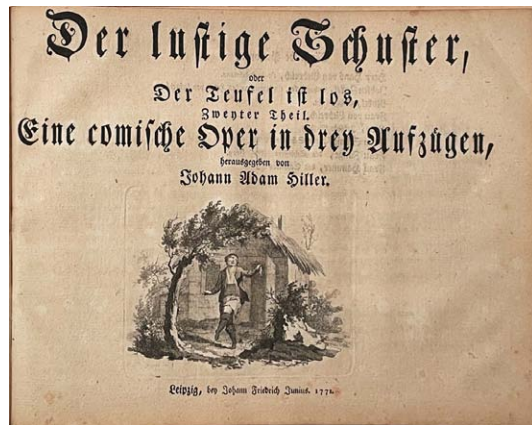 Der lustige Schuster,
oder
Der Teufel ist los,
Zweyter Theil.
Eine comische Oper in drey Aufzügen,
herausgegeben von
Johann Adam Hiller.
Leipzig, bey Johann Friedrich Junius. 1771.